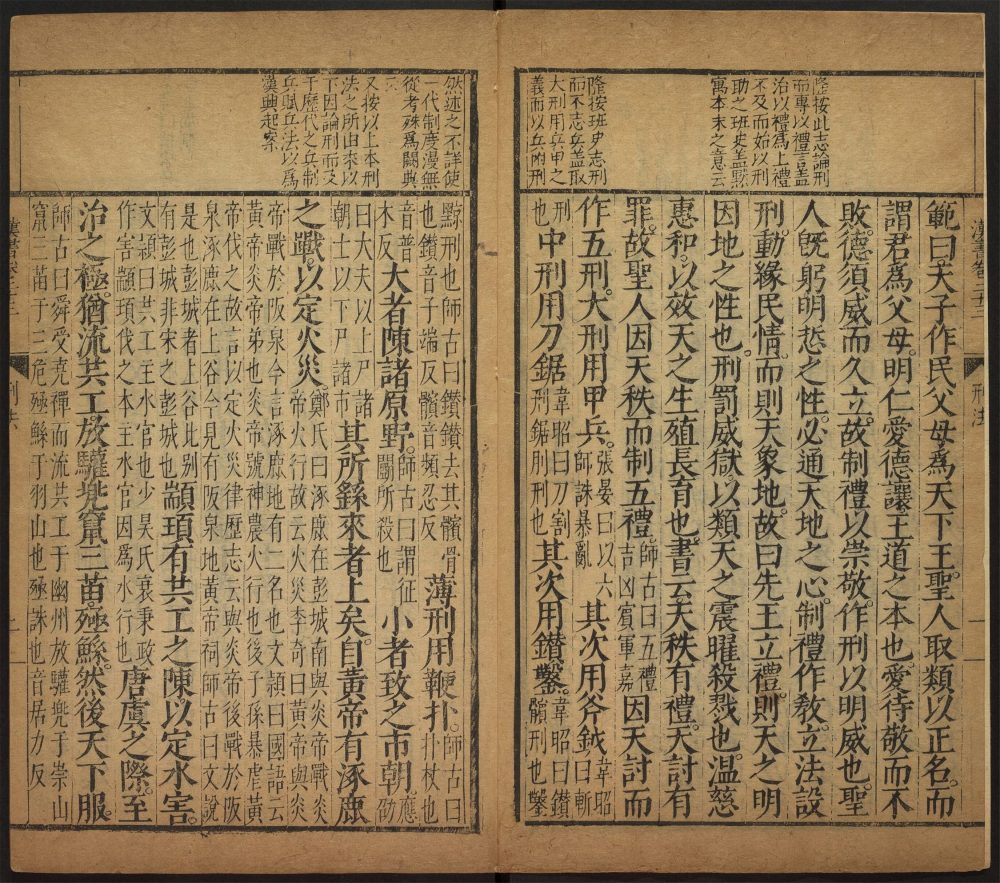 隆按此志論刑
而專以禮言蓋
治以禮爲上禮
不及而始以刑
助之班史蓋黙
寓本末之意云
隆按班史志刑
而不志兵蓋取
大刑用兵甲之
義而以兵附刑
漢書卷二十三 刑法 一
範曰天子作民父母爲天下王聖人取類以正名而
謂君爲父母明仁愛德讓王道之本也愛待敬而不
敗德須威而久立故制禮以崇敬作刑以明威也聖
人旣躬明悊之性必通天地之心制禮作敎立法設
刑動緣民情而則天象地故曰先王立禮則天之明
因地之性也刑罰威獄以類天之震曜殺戮也溫慈
惠和以效天之生殖長育也書云天秩有禮天討有
罪故聖人因天秩而制五禮師古曰五禮吉凶賓軍嘉因天討而
作五刑大刑用甲兵張晏曰以六師誅暴亂其次用斧鉞韋昭曰斬
刑也中刑用刀鋸韋昭曰刀割刑鋸刖刑也其次用鑽鑿韋昭曰鑽臏刑也鑿
然述之不詳使
一代制度漫無
從考殊爲闕典
云
又按以上本刑
法之所由來以
下因論刑而及
于歷代之兵制
兵賦兵法以爲
漢興起案
黥刑也師古曰鑽鑽去其髕骨也鑽音子端反髕音頻忍反薄刑用鞭扑師古曰扑杖也
音普木反大者陳諸原野師古曰謂征鬬所殺也小者致之市朝應劭
曰大夫以上尸諸朝士以下尸諸市其所繇來者上矣自黃帝有涿鹿
之戰以定火災鄭氏曰涿鹿在彭城南與炎帝戰炎帝火行故云火災李奇曰黃帝與炎
帝戰於阪泉今言涿鹿地有二名也文穎曰國語云黃帝炎帝弟也炎帝號神農火行也後子孫暴虐黃
帝伐之故言以定火災律歷志云與炎帝後戰於阪泉涿鹿在上谷今見有阪泉地黃帝祠師古曰文說
是也彭城者上谷北别有彭城非宋之彭城也顓頊有共工之陳以定水害
文穎曰共工主水官也少昊氏衰秉政作害顓頊伐之本主水官因爲水行也唐虞之際至
治之極猶流共工放驩兜竄三苗殛鯀然後天下服
師古曰舜受堯禪而流共工于幽州放驩兜于崇山竄三苗于三危殛鯀于羽山也殛誅也音居力反